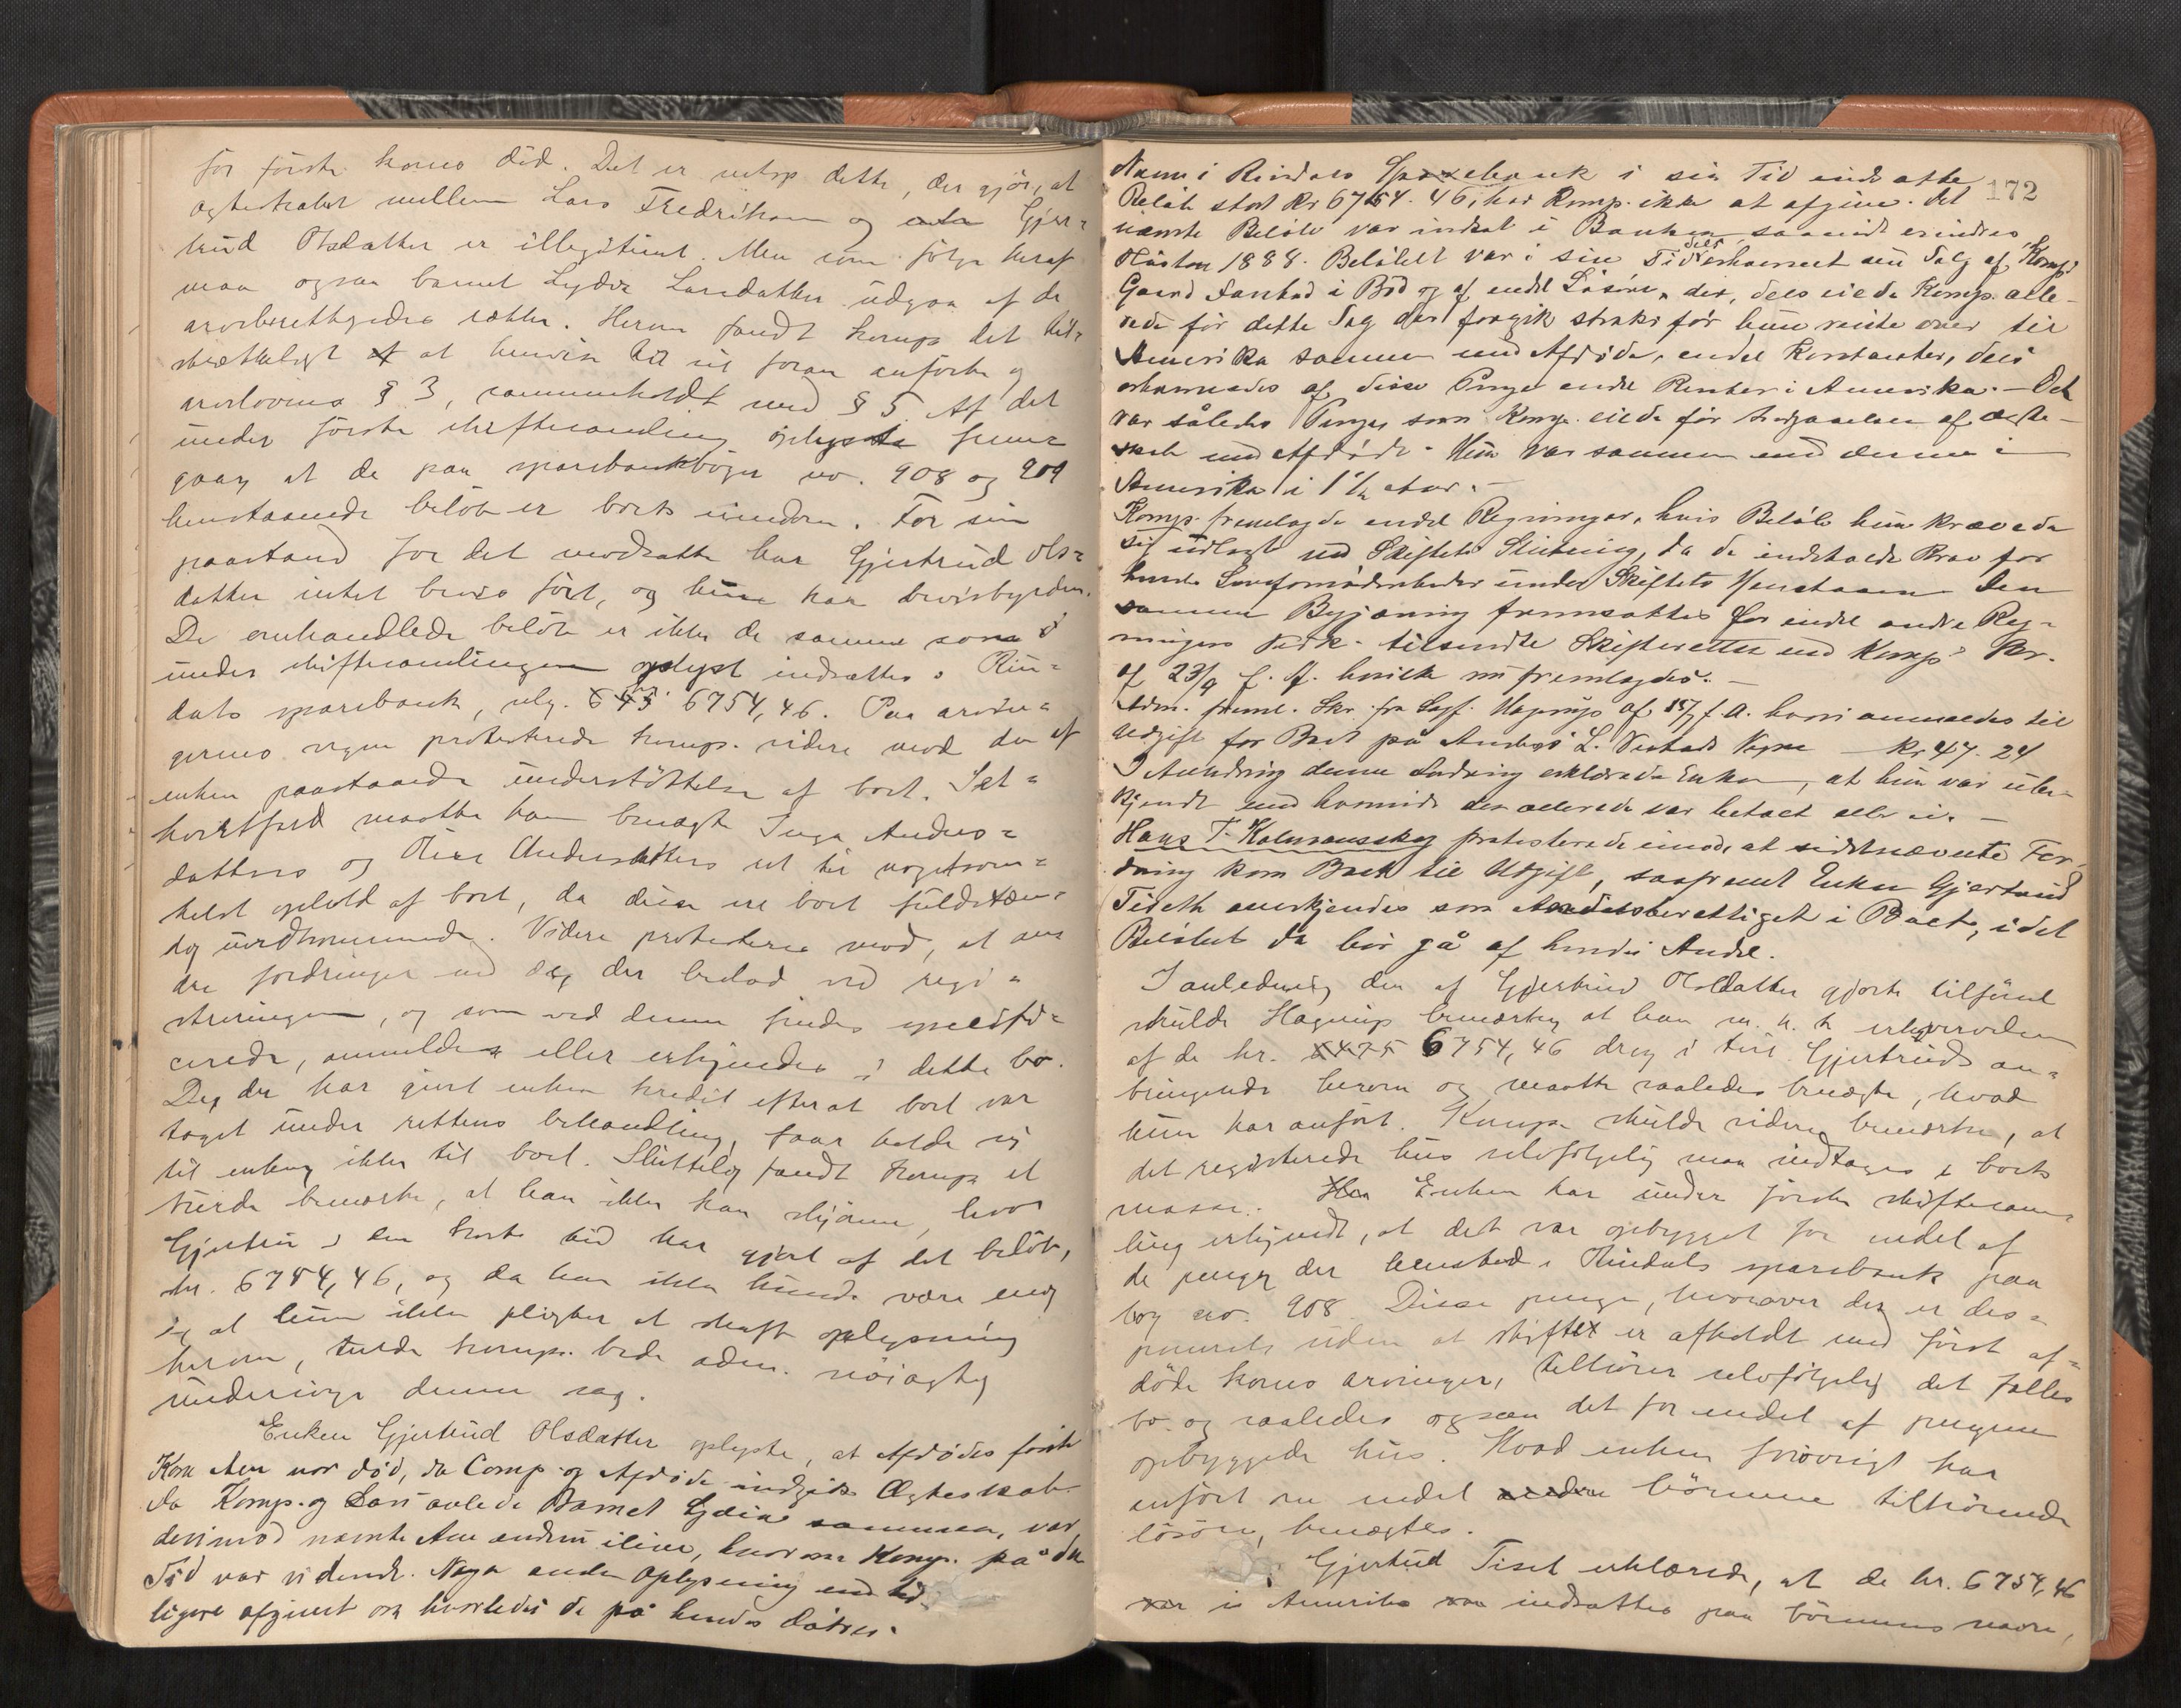 för förste kones död. Det er netop dette, der gjör, at
egteskabet mellem Lars Fredriksen og Gjer=
trud Olsdatter er illegitimt. Men som fölge heraf
maa ogsaa barnet Lydia Larsdatter udgaa af de
arveberettigedes rækker. Herom fandt komp. det til=
strækkeligt at henvise til sit foran anförte og
arvelovens § 3, sammenholdt med § 5. Af det
under förste skiftesamling oplyste frem=
gaar, at de paa sparebankböger no. 908 og 909
henstaaende belöb er boets eiendom. For sin
paastand for det modsatte har Gjertrud Ols=
datter intet bevis fört, og hun har bevisbyrden.
De omhandlede belöb er ikke de samme som i
under skiftesamlingen oplyst indsattes i Rin=
dals sparebank, nlg. 6754,46. Paa arvin=
gernes vegne protesterede komp. videre mod den af
enken paastaaede understöttelse af boet. Lel=
hvertfald maatte han benægte Inga Anders=
datters og Oline Andersdatters ret til nogetsom=
helst ophold af boet, da disse er boet fuldstæn=
dig uvedkommende. Videre protesteres mod, at an=
dre fordringer end de, der bestod ved regi=
streringen, og som ved denne findes specifi=
cerede, anmeldes eller erkjendes i dette bo.
De, der har givet enken kredit efterat boet var
taget under rettens behandling, faar holde sig
til enken, ikke til boet. Sluttelig fandt komp. at
burde bemærke, at han ikke kan skjönne, hvor
Gjertrud i den korte tid har gjort af det belöb,
kr. 6754,46, og da han ikke kunde være enig
i, at hun ikke pligter at skaffe oplysning
herom, turde komp. bede adm. nöiagtig
undersöge denne sag.
Enken Gjertrud Olsdatter oplyste, at Afdödes förste
Kone Ane var död, da Comp. og Afdöde indgik Ægteskab.
Da Komp. og Lars avlede Barnet Lydia sammen, var
derimod nævnte Ane endnu ilive, hvorom Komp. på den
Tid var vidende. Nogen anden Oplysning end tid=
ligere afgivet om hvorledes de på hendes Dötres
172
Navn i Rindals Sparebank i sin Tid indsatte
Belöb stort Kr 6754.46, har Komp. ikke at afgive. Det
nævnte Belöb var indsat i Banken saavidt erindres
Hösten 1888. Belöbet var i sin Tid dels erhvervet ved Salg af Komp.s
Gaard i Bod og af endel Lösöre, der, dels eiede Komp. alle-
rede för dette Salg der foregik straks för hun reiste over til
Amerika sammen med Afdöde, endel Kontanter, dels
erhvervedes af disse Penge endel Renter i Amerika. — Det
var således Penge, som Komp. eiede för Indgaaelsen af Ægte-
skab med Afdöde. Hun var sammen med denne i
Amerika i 1½ Aar. —
Komp. fremlagde endel Regninger, hvis Belöb hun krævede
sig udlagt ved Skiftets Slutning, da de indeholdt Krav for
hendes Livsfornödenheder under Skiftets Henstaaen. Den
samme Begjæring fremsattes for endel andre Reg-
ninger Vedk. tilsendte Skifteretten med Komp.s Skr.
af 23/9 f. A. hvilke nu fremlagdes. —
Adm. freml. Skr. fra Sagf. Hagerup af 15/7 f. A. hvori anmeldes til
Udgift for Boet på Anders L. Vegne — Kr. 47.24
I Anledning denne Fordring erklærede Enken, at hun var ube-
kjendt med hvorvidt den allerede var betalt eller ei. —
Hans T. Kalvansskog protesterede imod, at sidstnævnte For-
dring kom Boet til Udgift, saafremt Enken Gjertrud
Tiseth anerkjendes som Andelsberettiget i Boet, idet
Belöbet da bör gå af hendes Andel.
I anledning den af Gjertrud Olsdatter gjorte tilförsel
skulde Hagerup bemærke, at han m. h. t. erhvervelsen
af de kr. 6754,46 drog i tvil Gjertruds an=
bringende herom og maatte saaledes benægte, hvad
hun har anfört. Komp. skulde videre bemærke, at
det registrerede hus selvfölgelig maa indtages i boets
masse. Enken har under förste skiftesam=
ling erkjendt, at det var opbygget for endel af
de penge, der henstod i Rindals sparebank paa
bog no. 908. Disse penge, hvorover der er dis=
poneret uden at skiftet er afholdt med först af=
döde kones arvinger, tilhörer selvfölgelig det fælles
bo og saaledes ogsaa det for endel af pengene
opbyggede hus. Hvad enken forövrigt har
anfört om endel börnene tilhörende
lösöre, benægtes.
Gjertrud Tiset erklærede, at de kr. 6754,46
i Amerika indsattes paa börnenes navn,